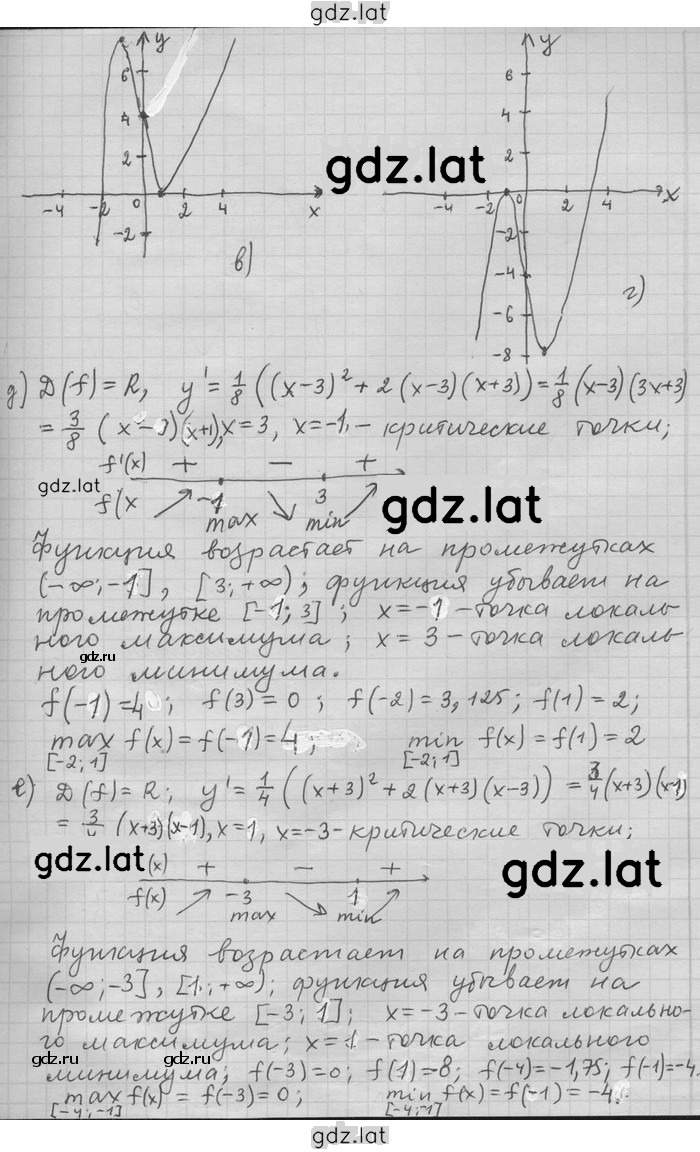 gdz.lat
y
6
4
2
-4 -2 0 2 4 x
-2
в)
y
6
4
2
-4 -2 0 2 4 x
-2
-4
-6
-8
г)
gdz.lat
д) D(f)=R, y'=1/8((x-3)²+2(x-3)(x+3))=1/8(x-3)(3x+3)
=3/8(x-3)(x+1), x=3, x=-1, - критические точки;
f'(x) + - +
gdz.lat
f(x -1 max 3 min
gdz.lat
Функция возрастает на промежутках
(-∞;-1], [3;+∞); функция убывает на
промежутке [-1;3]; x=-1 -точка локаль-
ного максимума; x=3 -точка локаль-
gdz.ru
ного минимума.
f(-1)=4; f(3)=0; f(-2)=3,125; f(1)=2;
max f(x)=f(-1)=4; min f(x)=f(1)=2
[-2;1] [-2;1]
е) D(f)=R; y'=1/4((x+3)²+2(x+3)(x-3))=3/4(x+3)(x-1)
=3/4(x+3)(x-1), x=1, x=-3- критические точки;
gdz.lat
(x) + - +
f(x) -3 max 1 min
gdz.lat
Функция возрастает на промежутках
(-∞;-3], [1;+∞); функция убывает на
промежутке [-3;1]; x=-3-точка локально-
го максимума; x=1-точка локального
gdz.ru gdz.ru gdz.ru
минимума; f(-3)=0; f(1)=8; f(-4)=-1,75; f(-1)=-4.
max f(x)=f(-3)=0; min f(x)=f(-1)=-4.
[-4;-1] [-4;-1]
gdz.lat